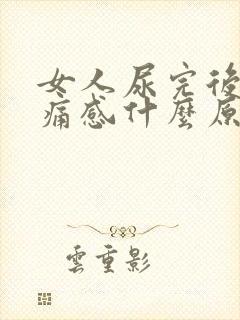 女人尿完後
痛感什麼原
雲重影